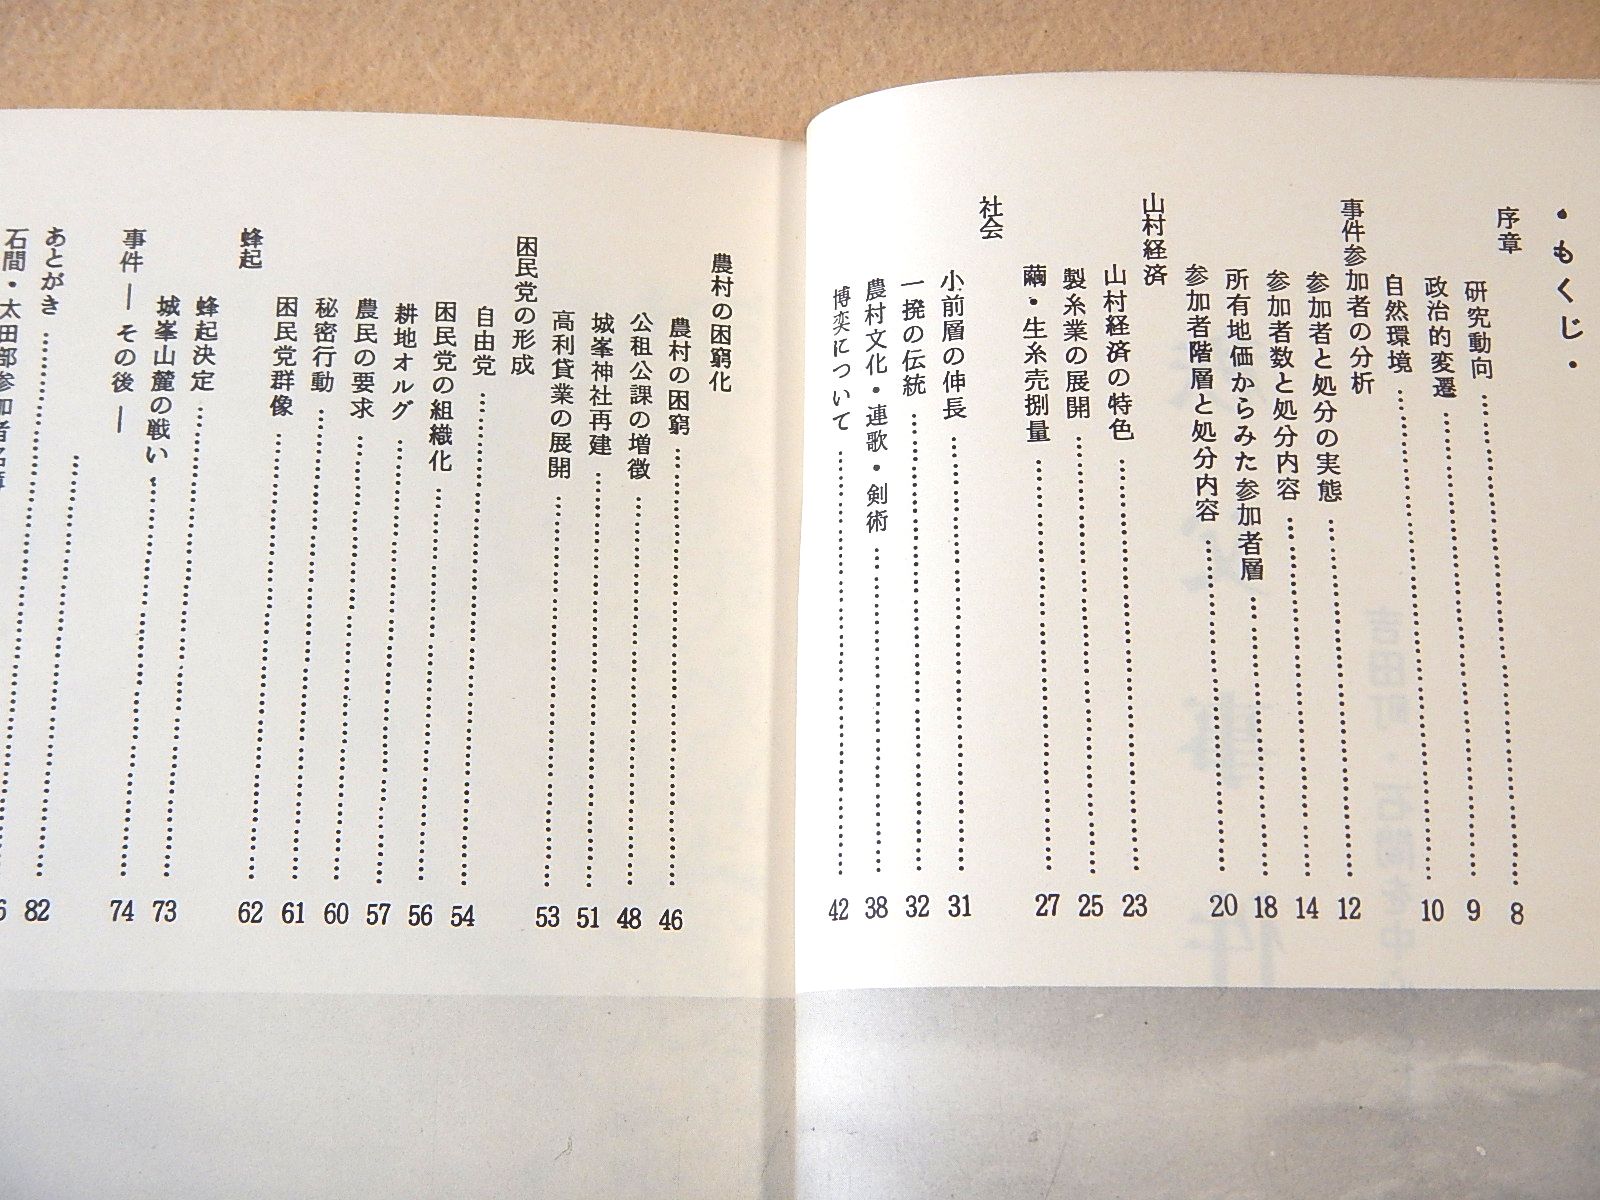 ・もくじ・
序章
研究動向……8
政治的変遷……9
自然環境……10
事件参加者の分析
参加者と処分の実態……12
参加者数と処分内容……14
所有地価からみた参加者層……18
参加者階層と処分内容……20
山村経済
山村経済の特色……23
製糸業の展開……25
繭・生糸売捌量……27
社会
小前層の伸長……31
一揆の伝統……32
農村文化・連歌・剣術……38
博奕について……42
農村の困窮化
農村の困窮……46
公租公課の増徴……48
城峯神社再建……51
高利貸業の展開……53
困民党の形成
自由党……54
困民党の組織化……56
耕地オルグ……57
農民の要求……60
秘密行動……61
困民党群像……62
蜂起
蜂起決定……73
城峯山麓の戦い……74
事件―その後―
……82
あとがき……
石間・太田部参加者名簿